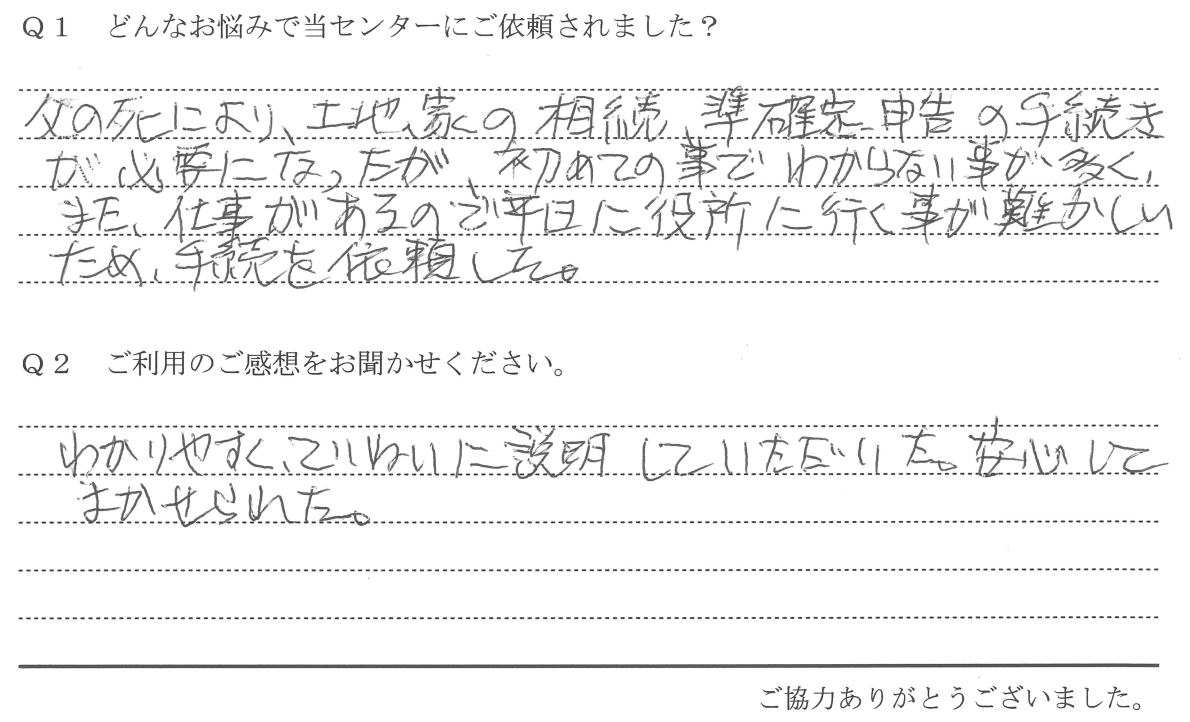 Q1 どんなお悩みで当センターにご依頼されました?
父の死により、土地、家の相続、準確定申告の手続き
が必要になったが、初めての事でわからない事が多く、
また、仕事があるので平日に役所に行く事が難かしい
ため、手続を依頼した。
Q2 ご利用のご感想をお聞かせください。
わかりやすく、ていねいに説明していただいた。安心して
まかせられた。
ご協力ありがとうございました。